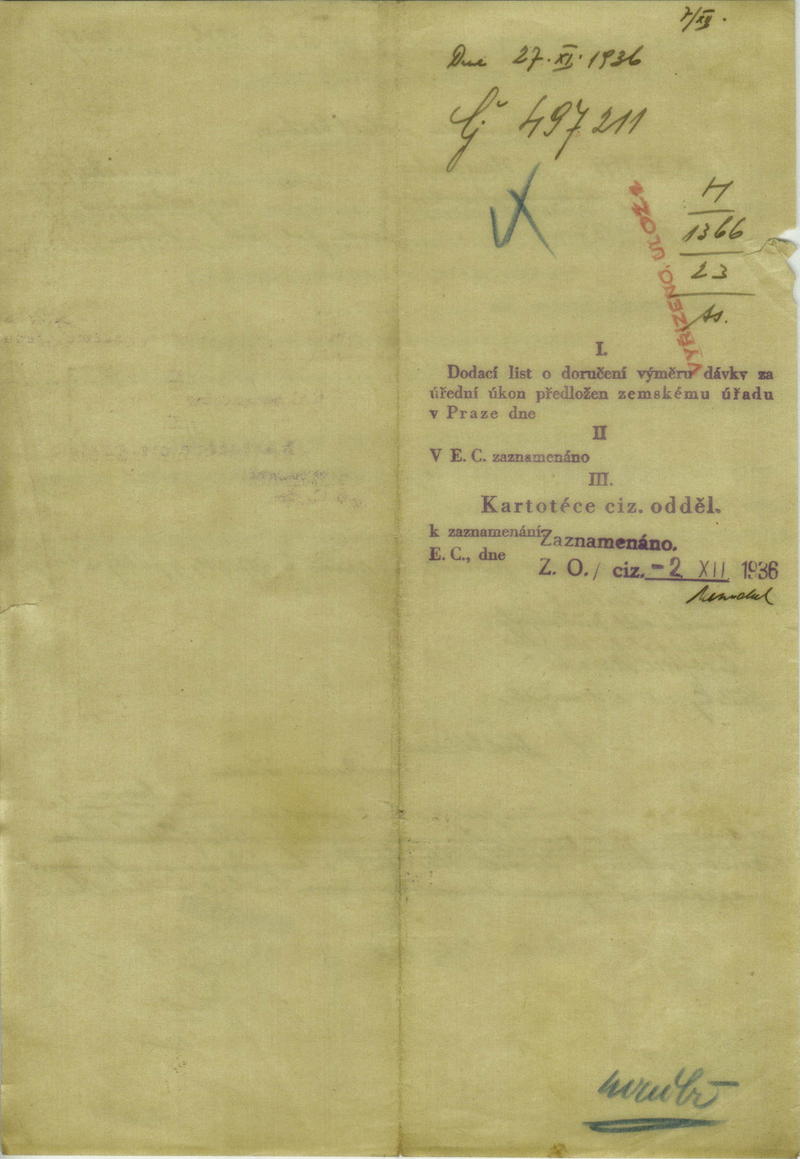 7/XII.
Dne 27.XI.1936
Čj 497211
H
1366
23
As.
VYŘÍZENO, ULOŽ
I.
Dodací list o doručení výměru dávky za
úřední úkon předložen zemskému úřadu
v Praze dne
II
V E. C. zaznamenáno
III.
Kartotéce ciz. odděl.
k zaznamenání
Zaznamenáno.
E. C., dne
Z. O./ ciz. -2 XII 1936